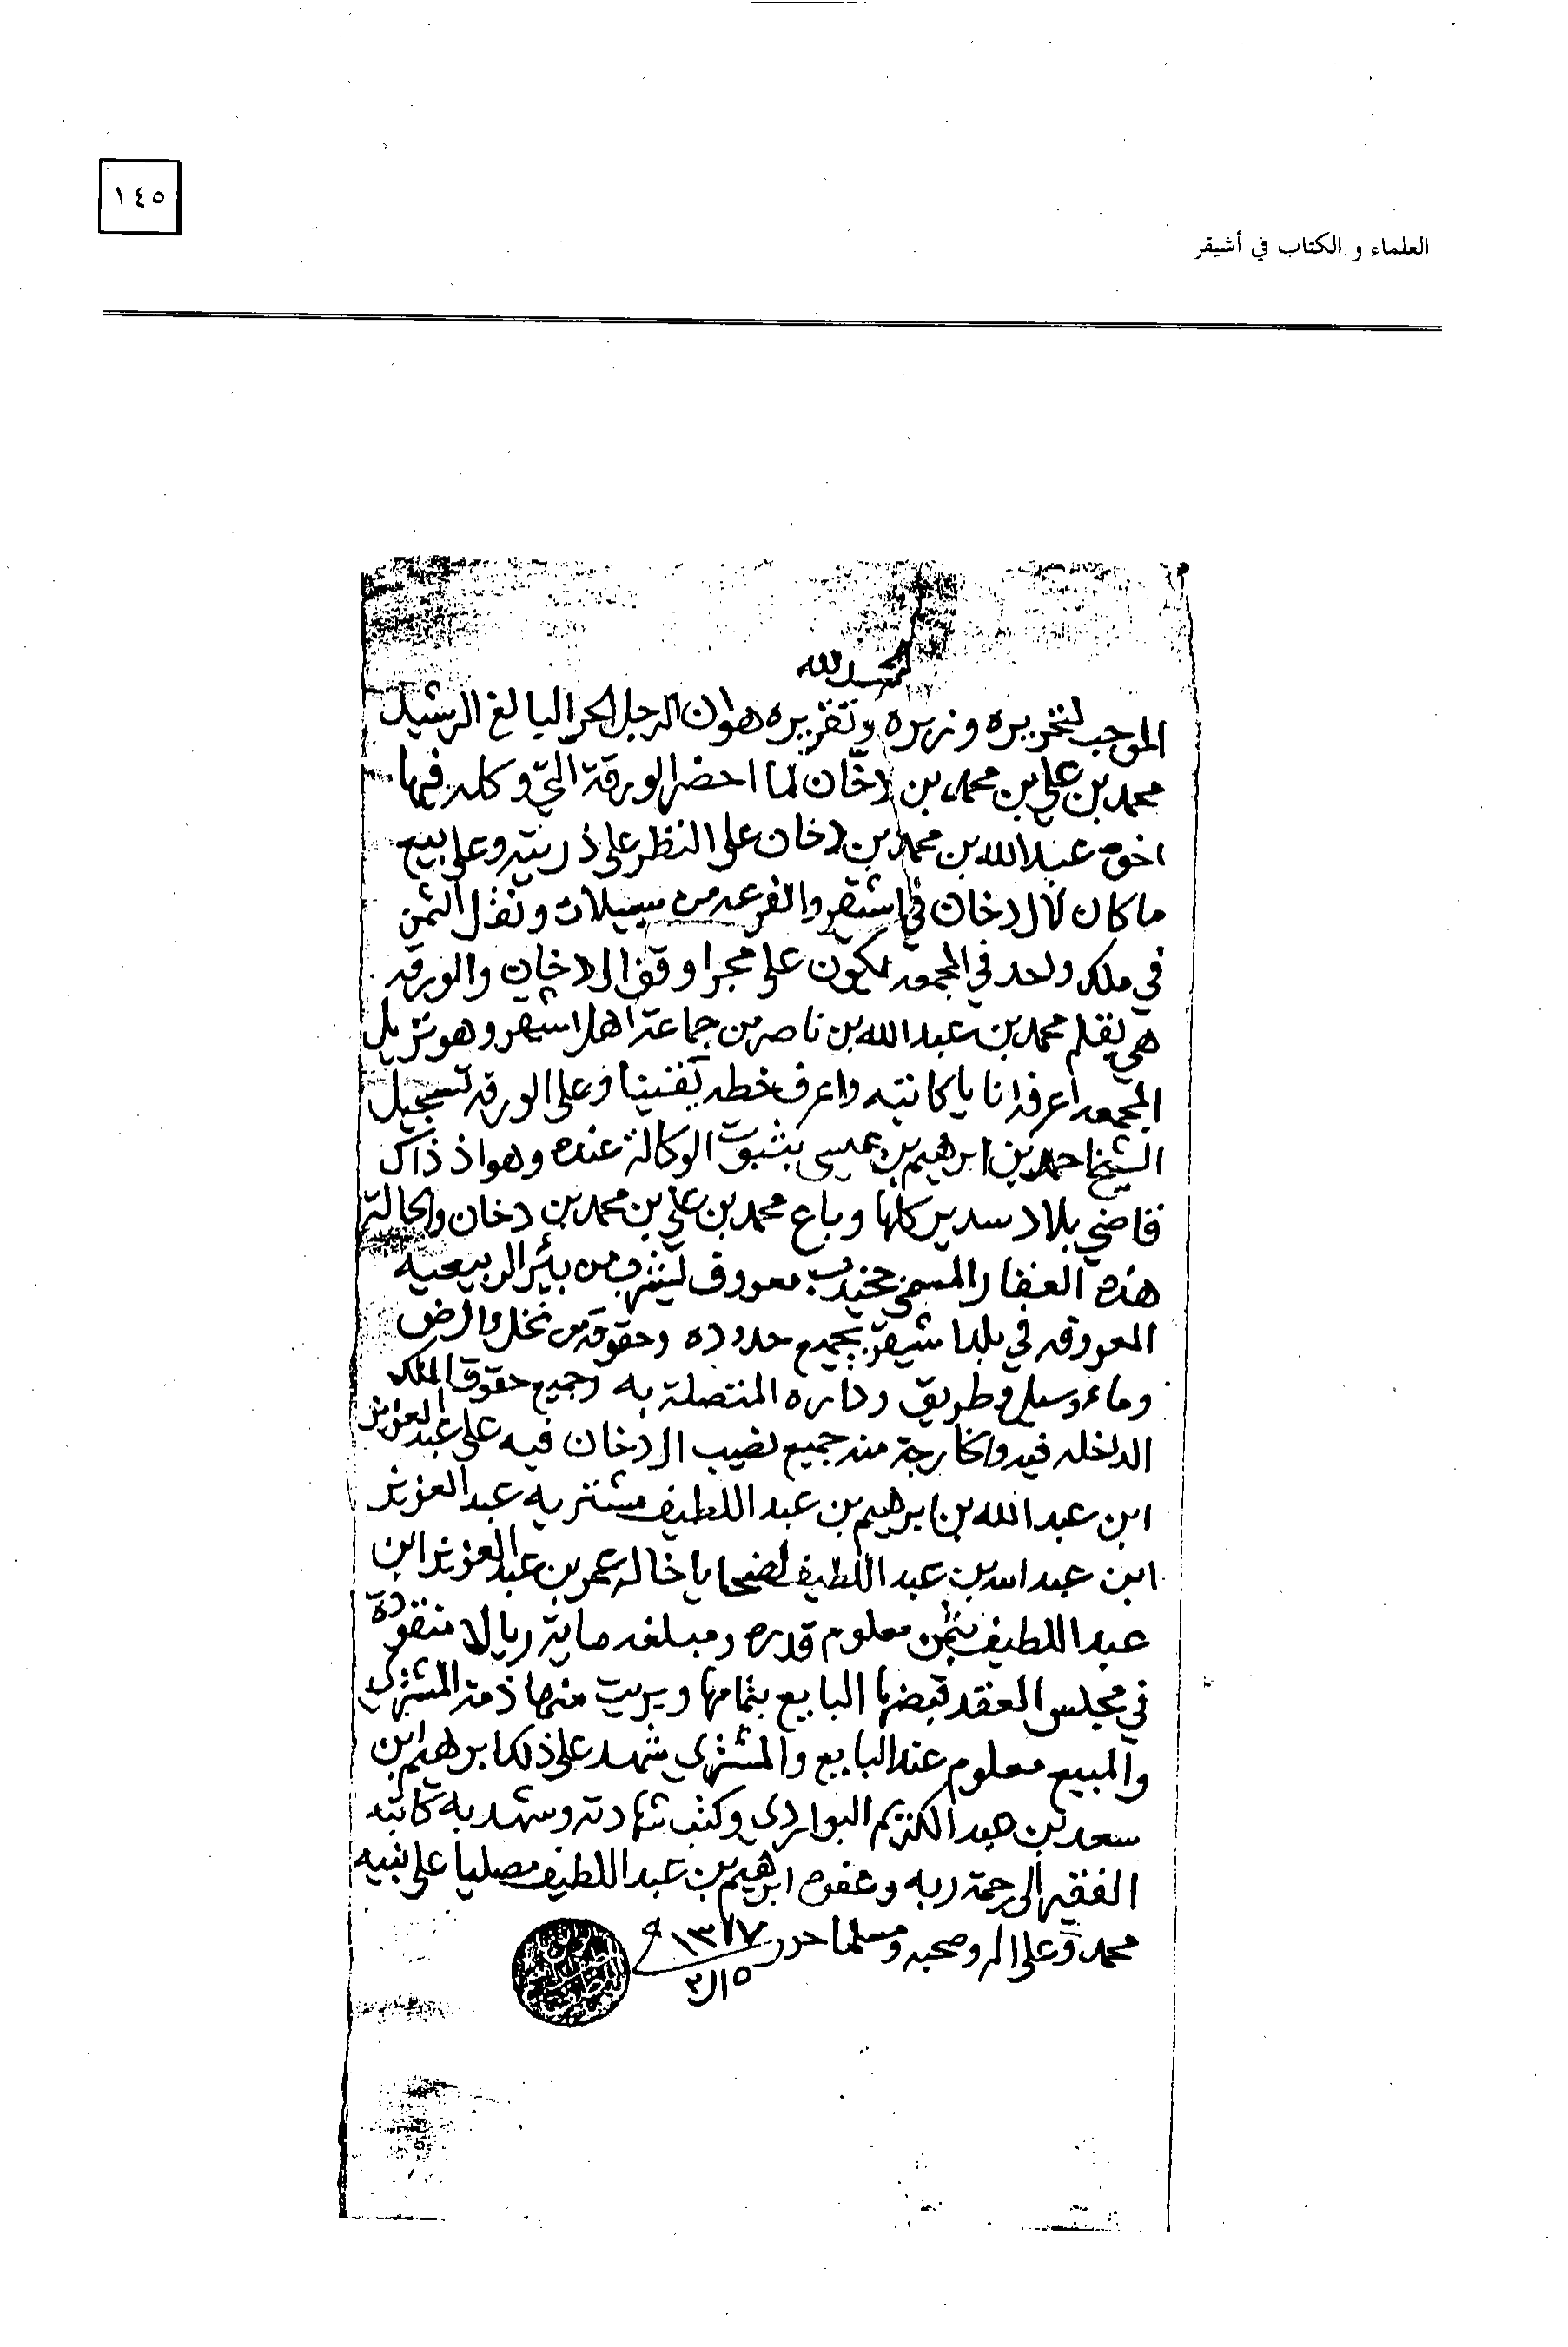 ١٤٥
العلماء و الكتاب في أشيقر
الحمد لله
الموجب لتحريره وزبره وتقريره هو ان الرجل الحر البالغ الرشيد
محمد بن علي بن محمد بن دخّان لما احضر الورقة التي وكله فيها
اخوه عبدالله بن محمد بن دخان على النظر على ذريته وعلى بيع
ما كان لال دخان في اشيقر والفرعه من سبيلات ونقل الثمن
في ملك واحد في المجمعه يكون على مجرا وقف ال دخان والورقه
هي بقلم محمد بن عبدالله بن ناصر من جماعة اهل اشيقر وهو نزيل
المجمعه اعرفه انا يا كاتبه واعرف خطه يقينيا وعلى الورقه تسجيل
الشيخ احمد بن ابرهيم بن عيسى بثبوت الوكالة عنده وهو اذ ذاك
قاضي بلاد سدير كلها وباع محمد بن علي بن محمد بن دخان والحالة
هذه العقار المسمى معروف ليشرب من بئر الربيعيه
المعروفه في بلد اشيقر بجميع حدوده وحقوقه من نخل وارض
وماء وسيل وطريق وداره المتصلة به وجميع حقوق الملك
الداخله فيه والخارجة منه جميع نصيب ال دخان فيه على عبدالعزيز
ابن عبدالله بن ابرهيم بن عبد اللطيف مشتريه عبدالعزيز
ابن عبدالله بن عبد اللطيف لضحايا خاله عمر بن عبدالعزيز ابن
عبد اللطيف بثمن معلوم قدره ومبلغه ماية ريالا منقودة
في مجلس العقد قبضها البايع بتمامها وبريت منها ذمة المشتري
والمبيع معلوم عند البايع والمشتري شهد على ذلك ابرهيم ابن
سعد بن عبد الكريم البواردي وكتب شهادته وشهد به كاتبه
الفقير الى رحمة ربه وعفوه ابرهيم بن عبد اللطيف مصليا على نبيه
محمد وعلى اله وصحبه ومسلما حرر ه